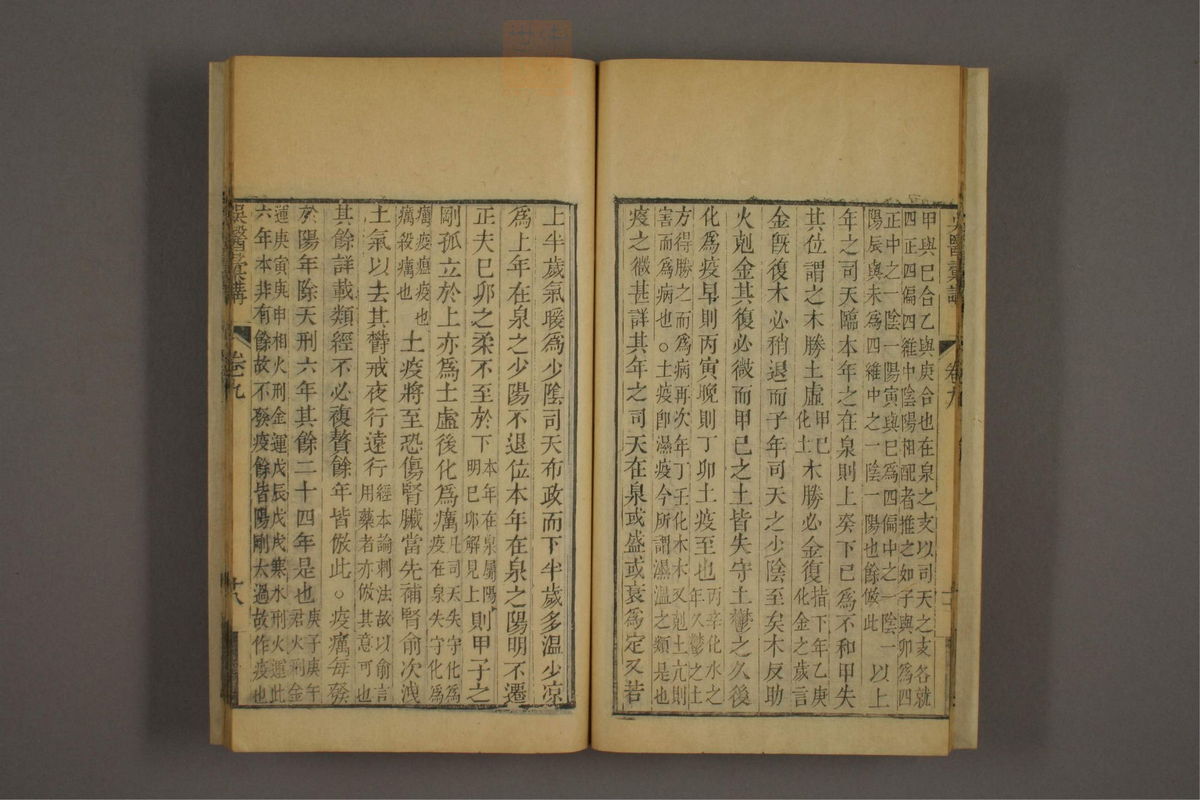 甲與巳合乙與庚合也在泉之支以司天之支各就
四正四偏四維中陰陽相配者推之如子與卯爲四
正中之一陰一陽寅與巳爲四偏中之一陰一
陽辰與未爲四維中之一陰一陽也餘倣此
以上
年之司天臨本年之在泉則上癸下巳爲不和甲失
其位謂之木勝土虛
甲巳
化土
木勝必金復
指下年乙庚
化金之歲言
金旣復木必稍退而子年司天之少陰至矣木反助
火剋金其復必微而甲巳之土皆失守土鬱之久後
化爲疫早則丙寅晚則丁卯土疫至也
丙辛化水之
年久鬱之土
方得勝之而爲病再次年丁壬化木木又剋土亢則
害而爲病也。土疫卽濕疫今所謂濕溫之類是也
疫之微甚詳其年之司天在泉或盛或衰爲定又若
上半歲氣暖爲少陰司天布政而下半歲多溫少凉
爲上年在泉之少陽不退位本年在泉之陽明不遷
正夫巳卯之柔不至於下
本年在泉屬陽
明巳卯解見上
則甲子之
剛孤立於上亦爲土虛後化爲癘
凡司天失守化爲
疫在泉失守化爲
癘疫瘟疫也
癘殺癘也
土疫將至恐傷腎臟當先補腎俞次洩
土氣以去其鬱戒夜行遠行
經本論刺法故以俞言
用藥者亦倣其意可也
其餘詳載類經不必複贅餘年皆倣此。疫癘每發
於陽年除天刑六年其餘二十四年是也
庚子庚午
君火刑金
運庚寅庚申相火刑金運戊辰戊戌寒水刑火運此
六年本非有餘故不發疫餘皆陽剛太過故作疫也
吳醫彙講
卷九
十八